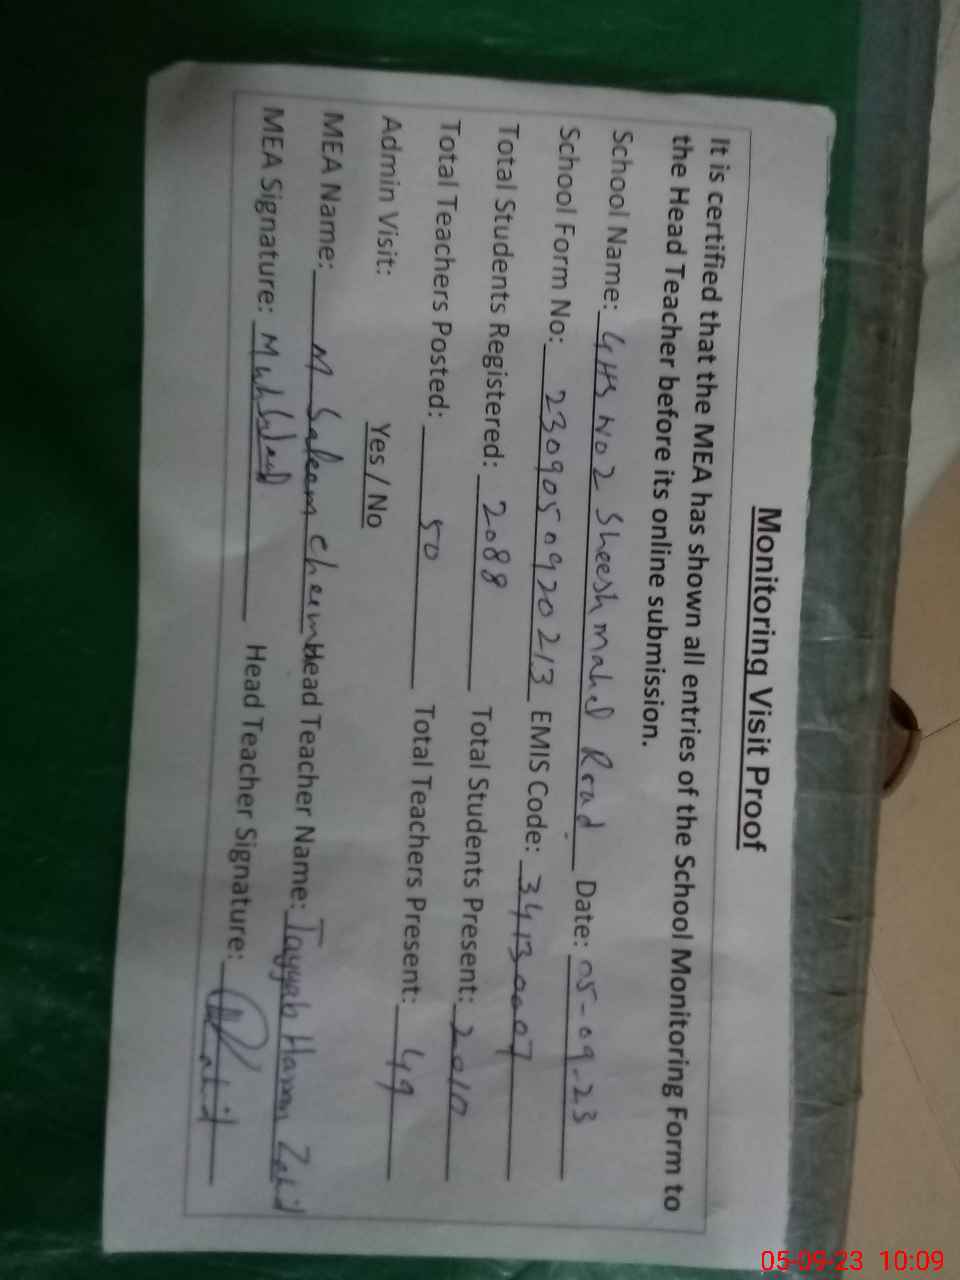 Monitoring Visit Proof
It is certified that the MEA has shown all entries of the School Monitoring Form to
the Head Teacher before its online submission.
School Name: GHS No 2 Sheesh mahal Road Date: 05-09-23
School Form No: 2309050920213 EMIS Code: 34130007
Total Students Registered: 2088 Total Students Present: 2010
Total Teachers Posted: 50 Total Teachers Present: 49
Admin Visit: Yes / No
MEA Name: M Saleem Head Teacher Name: Tayyab Zahid
MEA Signature: Head Teacher Signature:
05-09-23 10:09